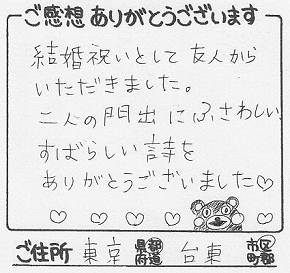 ご感想ありがとうございます
結婚祝いとして友人から
いただきました。
二人の門出にふさわしい
すばらしい詩を
ありがとうございました♡
ご住所 東京 都道府県 台東 市区町郡